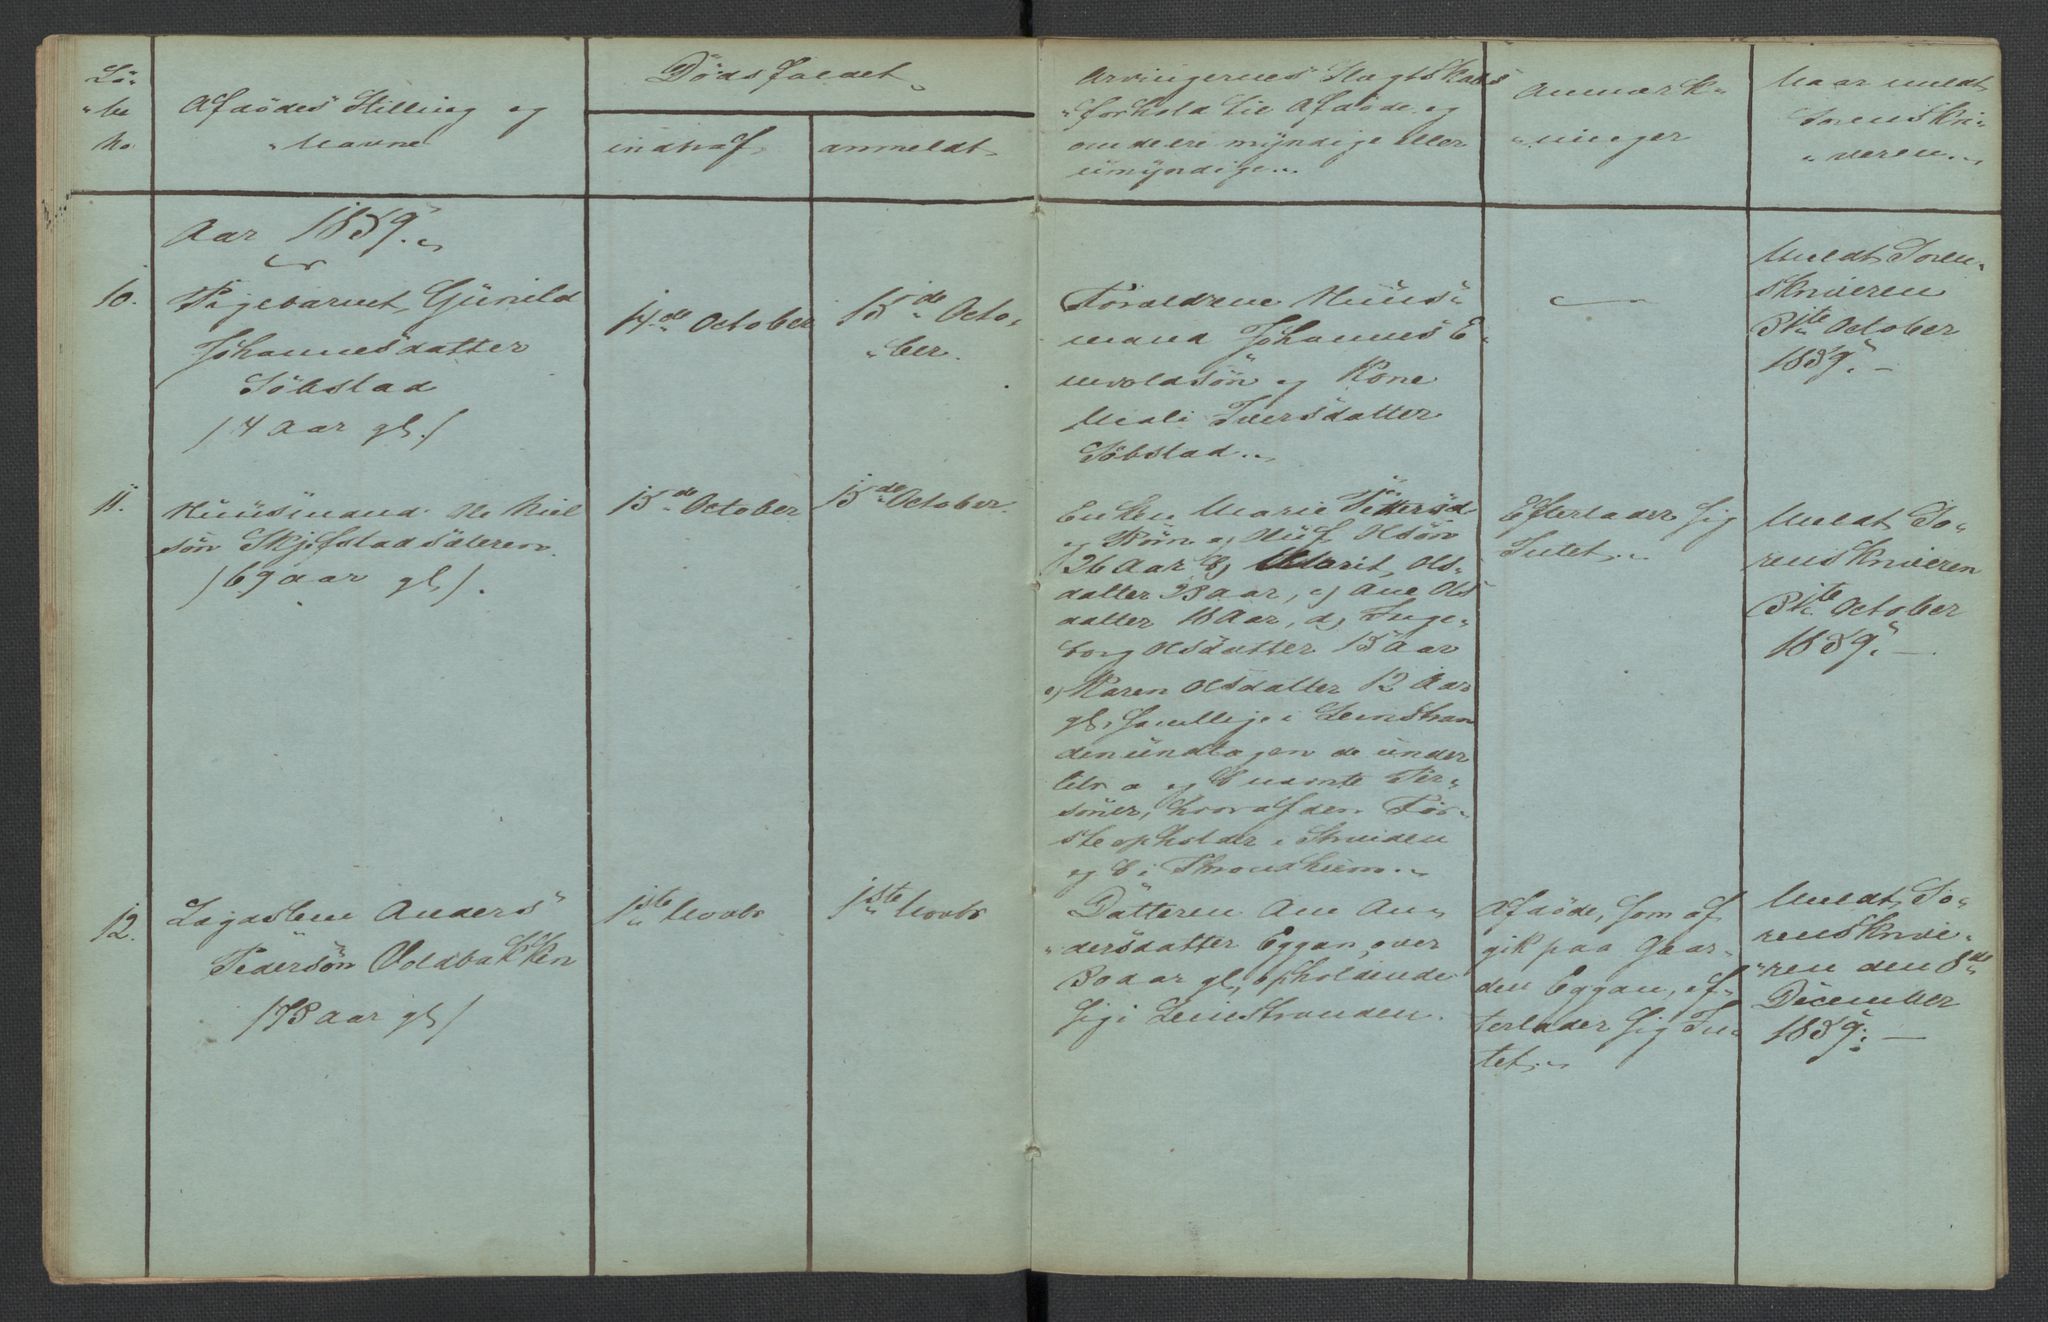 Lö-
be
No.
Afdödes Stilling og
Navne
Dödsfaldet
indtraf.
anmeldt.
Arvingernes Slægtskabs
forhold til Afdöde og
om de ere myndige eller
umyndige.
Anmærk-
ninger
Naar meldt
Sorenskri-
veren.
Aar 1859.
10.
Pigebarnet Günild
Johannesdatter
Söbstad
/4 Aar gl./
14de October
15de Octo-
ber.
Forældrene Huus-
mand Johannes E-
nvoldsön og Kone
Mali Iversdatter
Söbstad.
Meldt Soren-
skriveren
31te October
1859.
11.
Huusmand Ole Niel
sön Skjefstadsæteren
/69 aar gl/.
15de October
15de October.
Enken Marie Pettersd
og Börn a) Olsön
26 Aar b) Marit Ols-
datter 23 aar, c) Ane Ols
datter 18 Aar, d) Inge-
borg Olsdatter 15 Aar
e) Karen Olsdatter 12 Aar
gl, samtlige i Leinstran
den undtagen de under
litr a og b nævnte Per-
soner, hvoraf den För-
ste opholder i Strinden
og b i Throndhiem.
Efterlader sig
Intet.
Meldt So-
renskriveren
31te October
1859.
12.
Lægdslem Anders
Pedersön Voldbakken
/78 aar gl/
1ste Novbr
1ste Novbr
Datteren Ane An-
dersdatter Eggan, over
30 aar gl, opholdende
sig i Leinstranden.
Afdöde, som af
gik paa Gaar-
den Eggan, ef-
terlader sig In-
tet.
Meldt So-
renskrive-
ren den 8de
December
1859.